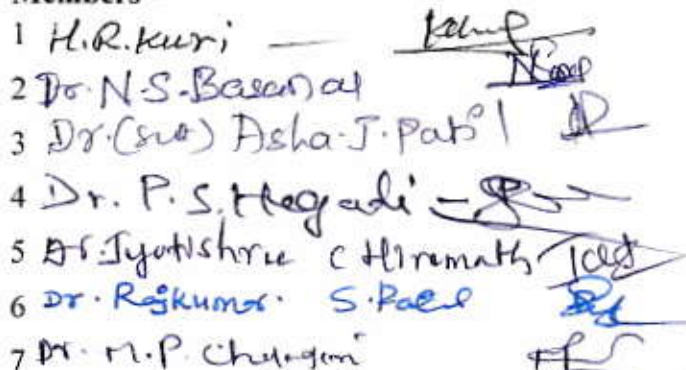 Members
1 H.R.Kuri
2 Dr. N.S.Basanal
3 Dr.(smt) Asha.J.Patil
4 Dr. P.S. Hegadi
5 Dr. Jyotishree C Hiremath
6 Dr. Rajkumar. S. Patil
7 Dr. M.P.